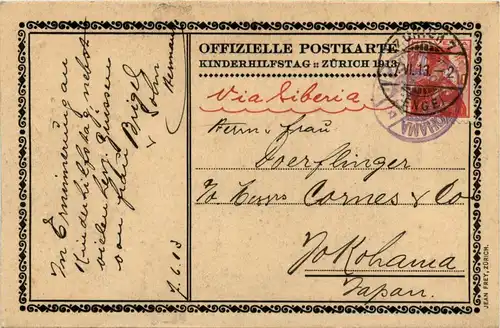 OFFIZIELLE POSTKARTE
KINDERHILFSTAG :: ZÜRICH 1913
Via Siberia
Herrn & Frau
Doerflinger
To Messrs Cornes & Co
Yokohama
Japan.
In Erinnerung an
Kinderhilfstag nebst
vielen herz. Grüssen
von Fritz Brügel
& Sohn
Hermann
7.6.13
ZÜRICH 7
7.VI.13.
ENGE
YOKOHAMA
JEAN FREY, ZÜRICH.